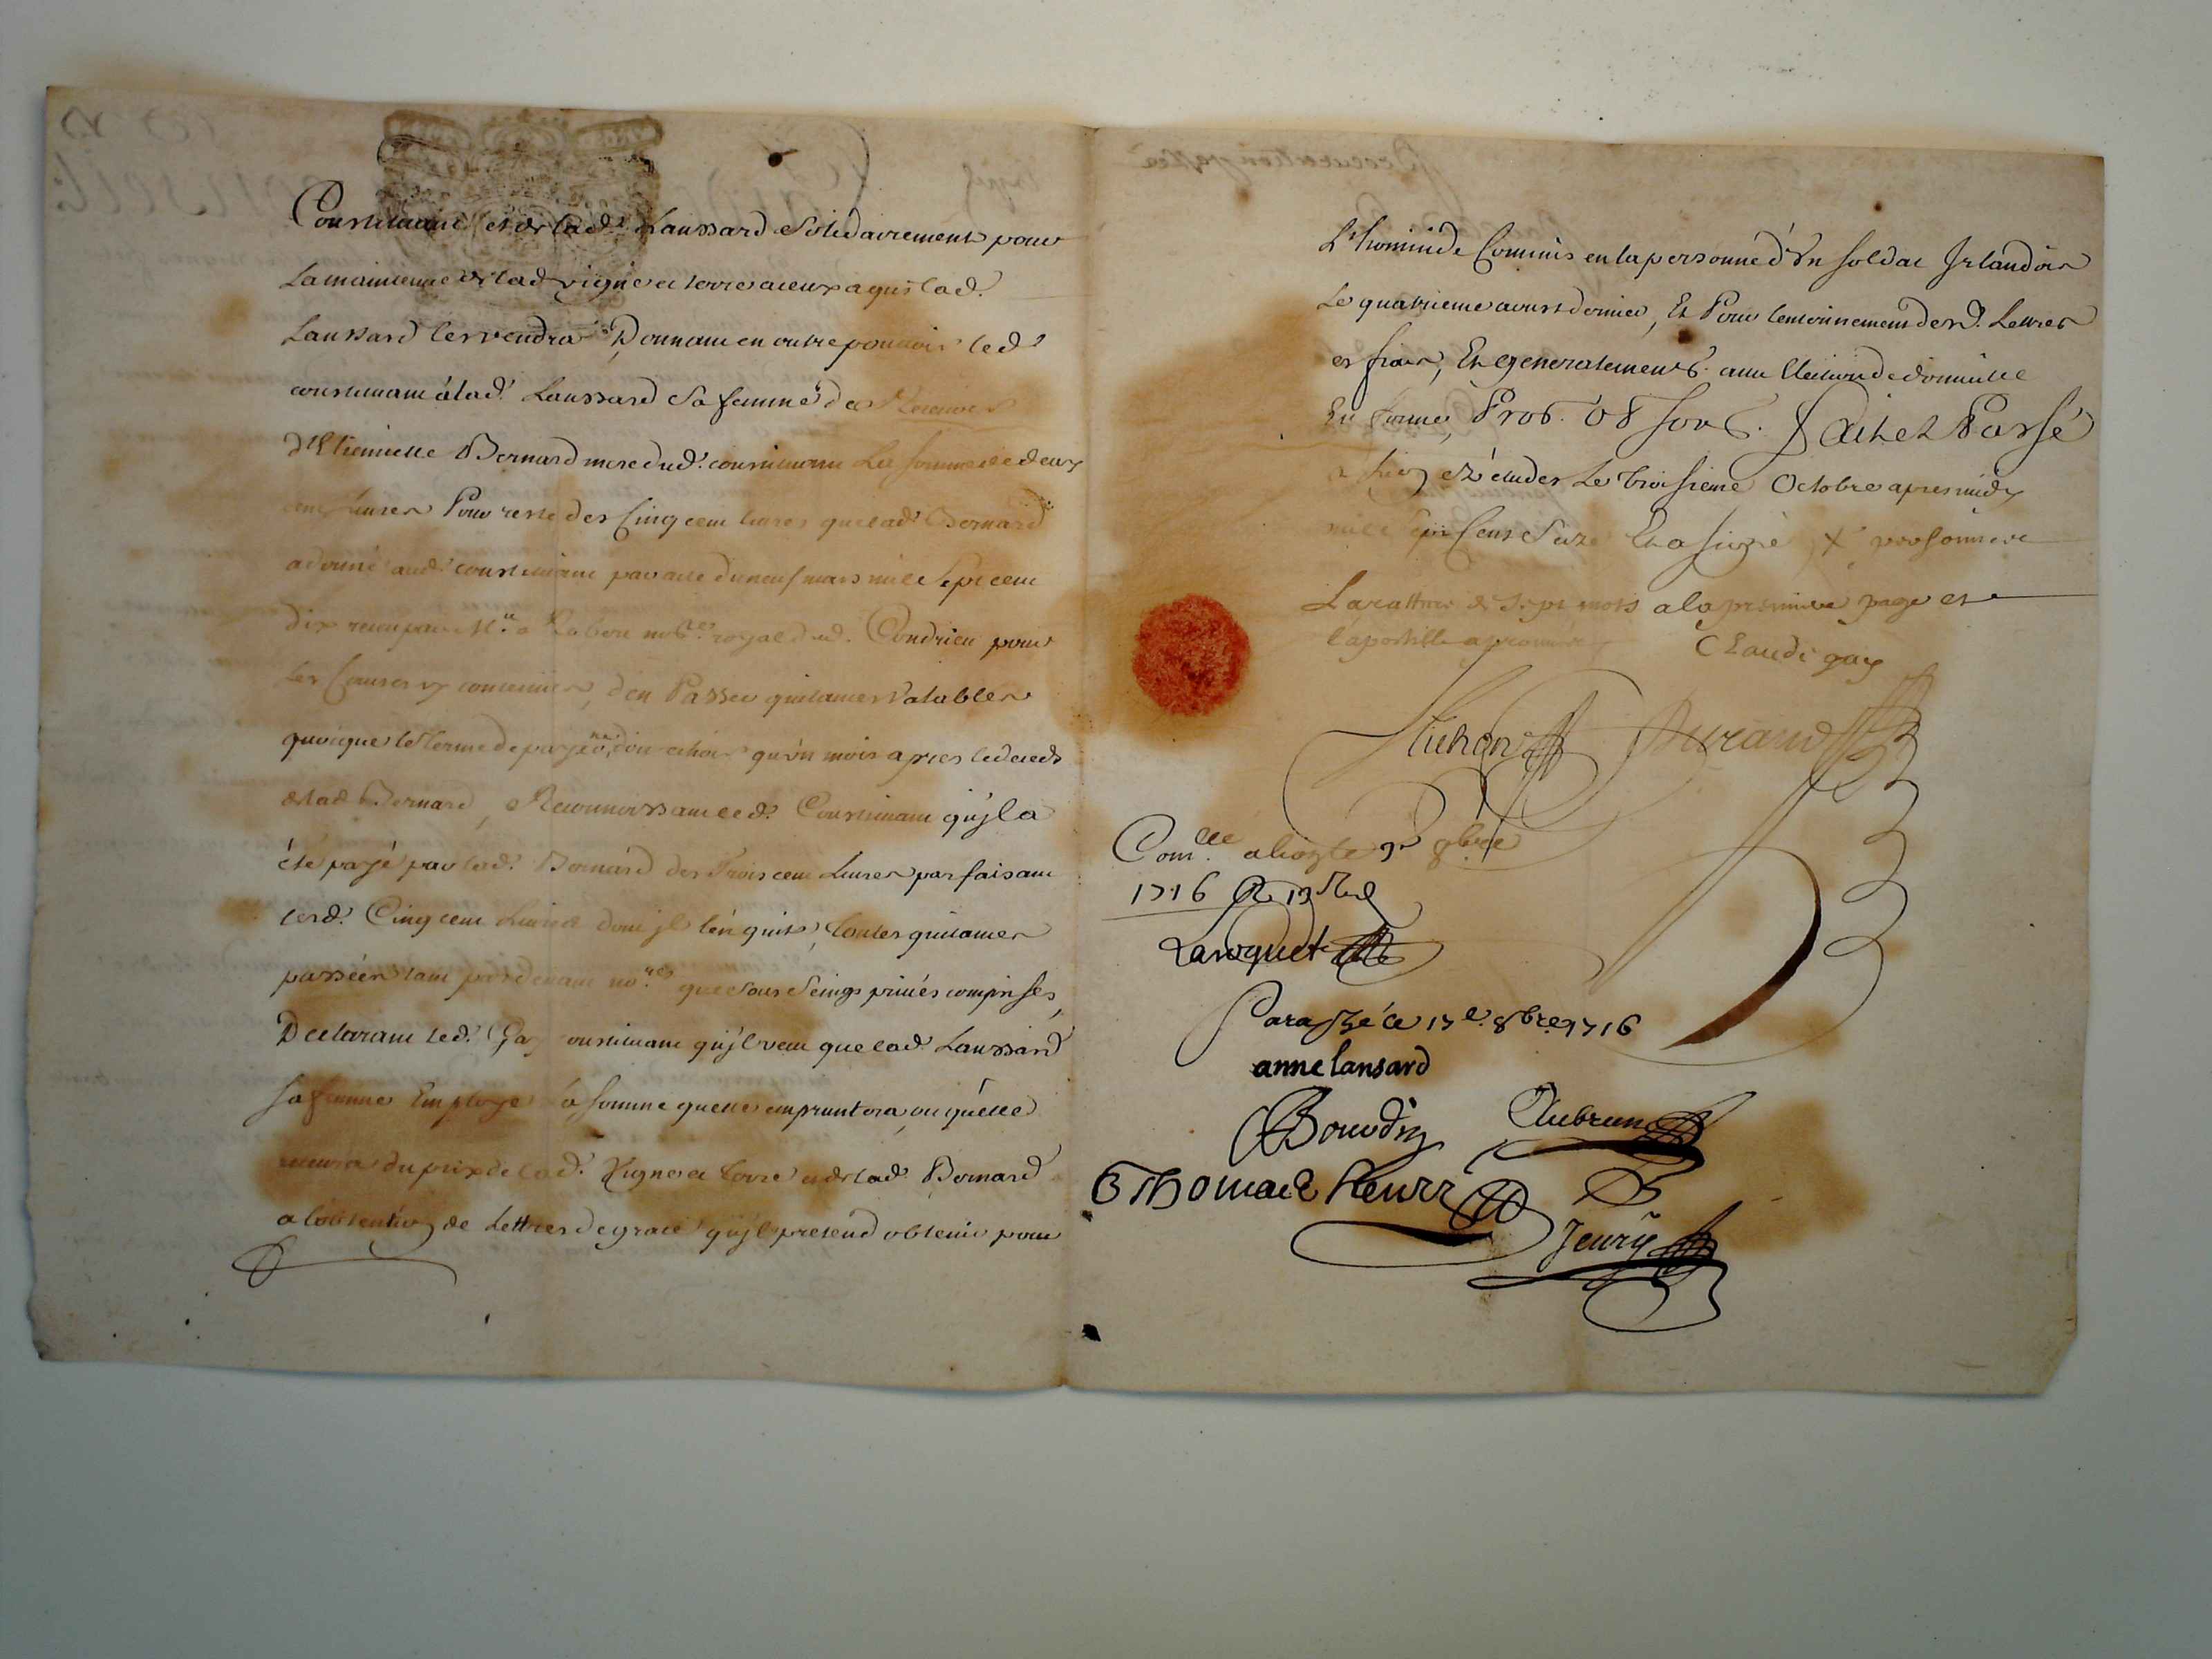 Constituant et de lad.e Lanssard Solidairement pour
La maintenue de lad. vigne et terre a ceux a qui lad.
Lanssard les vendra, Donnant en outre pouvoir led.
constituant à lad. Lanssard Sa femme de Recevoir
d'Etiennette Bernard mere dud. constituant La somme de deux
cent Livres Pour reste des Cinq cent livres que lad. Bernard
a donné aud. constituant par acte du neuf mars mil Sept cent
dix receu par M.e Rabou no.re royal dud. Condrieu pour
Les Causes y contenües, d'en Passer quitances Valables
quoique le terme de payem.nt n'en doit echoir qu'un mois apres le deceds
de lad. Bernard, Reconnoissant led. Constituant qu'jl a
été payé par lad. Bernard des Trois cent Livres parfaisant
lesd. Cinq cent Livres dont jl l'en quitte, toutes quitances
passées tant pardevant no.re que sous Seings privés comprises,
Declarant led. Gay constituant qu'jl veut que lad. Lanssard
sa femme Employe la somme quelle empruntera, ou quelle
recevra du prix de lad. Vigne et terre et de lad. Bernard
a l'obtention de Lettres de grace qu'jl pretend obtenir pour
L'homicide Commis en la personne d'Un soldat Jrlandois
Le quatrieme aoust dernier, Et Pour l'enterinnement desd. Lettres
et frais, Et generalement &. avec Election de domicille
En forme, Prob. Ob Sou &. Fait et Passé
le troisieme Octobre apres midy
mile sept Cent Seize Et a signé
La rature de Sept mots a la premiere page et
l'apostille approuvée
Claude gay
Durand
Com.lle a le 9.e 8bre
1716
Laroquet
Paraffé ce 17.e 8bre 1716
anne lansard
Bourdin Aubrun
Thomas henry
Jeury